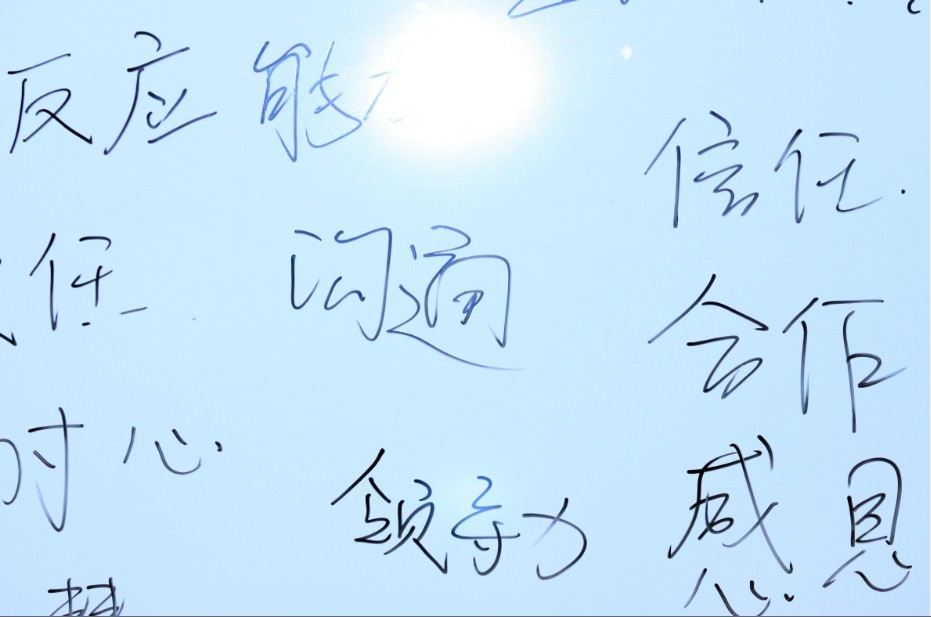 反应能
信任.
任
沟通
合作
心.
领导力
感恩